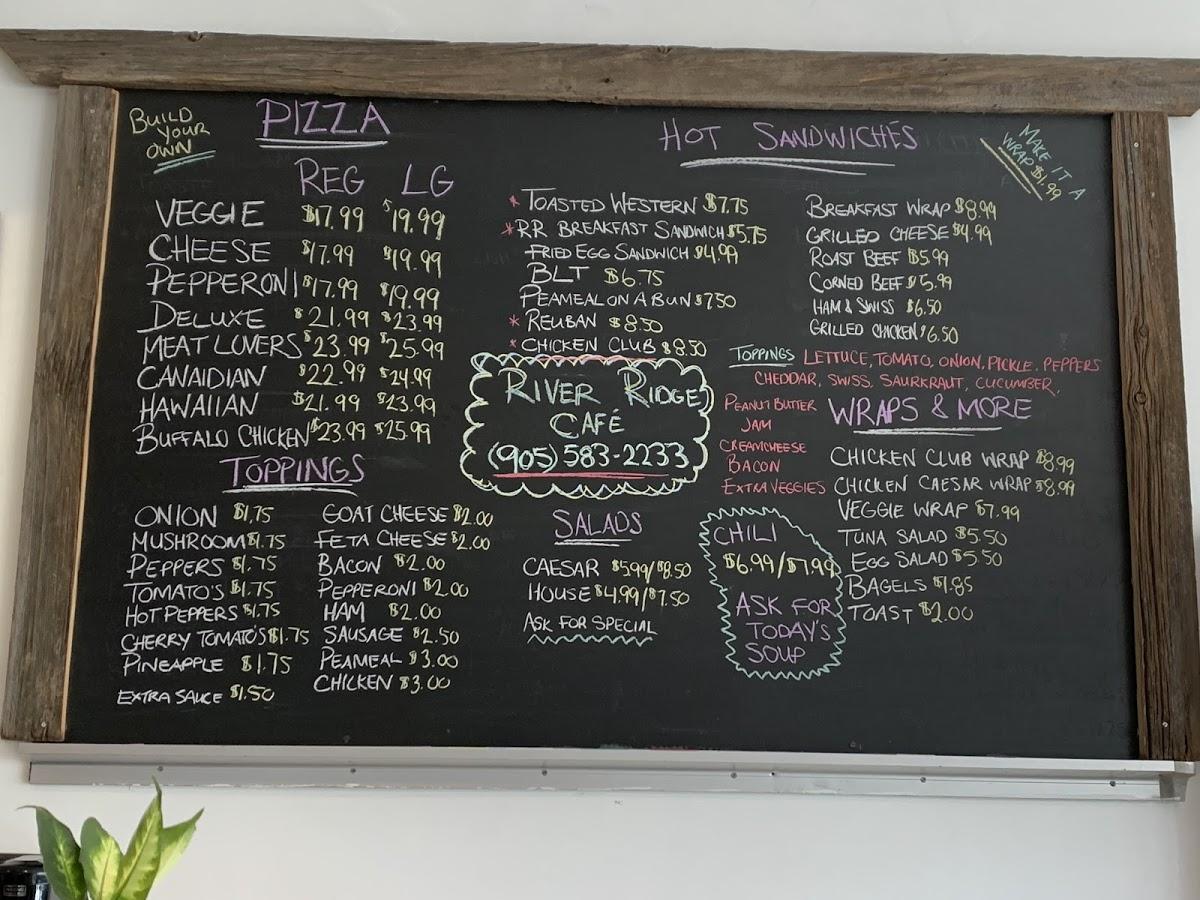 BUILD
YOUR
OWN
PIZZA
REG LG
VEGGIE $17.99 $19.99
CHEESE $17.99 $19.99
PEPPERONI $17.99 $19.99
DELUXE $21.99 $23.99
MEAT LOVERS $23.99 $25.99
CANAIDIAN $22.99 $24.99
HAWAIIAN $21.99 $23.99
BUFFALO CHICKEN $23.99 $25.99
TOPPINGS
ONION $1.75
MUSHROOM $1.75
PEPPERS $1.75
TOMATO'S $1.75
HOT PEPPERS $1.75
CHERRY TOMATO'S $1.75
PINEAPPLE $1.75
EXTRA SAUCE $1.50
GOAT CHEESE $2.00
FETA CHEESE $2.00
BACON $2.00
PEPPERONI $2.00
HAM $2.00
SAUSAGE $2.50
PEAMEAL $3.00
CHICKEN $3.00
HOT SANDWICHES
MAKE IT A
WRAP $1.99
* TOASTED WESTERN $7.75
* RR BREAKFAST SANDWICH $5.75
FRIED EGG SANDWICH $4.99
BLT $6.75
PEAMEAL ON A BUN $7.50
* REUBAN $8.50
* CHICKEN CLUB $8.50
BREAKFAST WRAP $8.99
GRILLED CHEESE $4.99
ROAST BEEF $5.99
CORNED BEEF $5.99
HAM & SWISS $6.50
GRILLED CHICKEN $6.50
TOPPINGS LETTUCE, TOMATO, ONION, PICKLE, PEPPERS
CHEDDAR, SWISS, SAURKRAUT, CUCUMBER,
PEANUT BUTTER
JAM
CREAMCHEESE
BACON
EXTRA VEGGIES
RIVER RIDGE
CAFÉ
(905) 583-2233
SALADS
CAESAR $5.99/$8.50
HOUSE $4.99/$7.50
ASK FOR SPECIAL
CHILI
$6.99/$7.99
ASK FOR
TODAY'S
SOUP
WRAPS & MORE
CHICKEN CLUB WRAP $8.99
CHICKEN CAESAR WRAP $8.99
VEGGIE WRAP $7.99
TUNA SALAD $5.50
EGG SALAD $5.50
BAGELS $1.85
TOAST $2.00